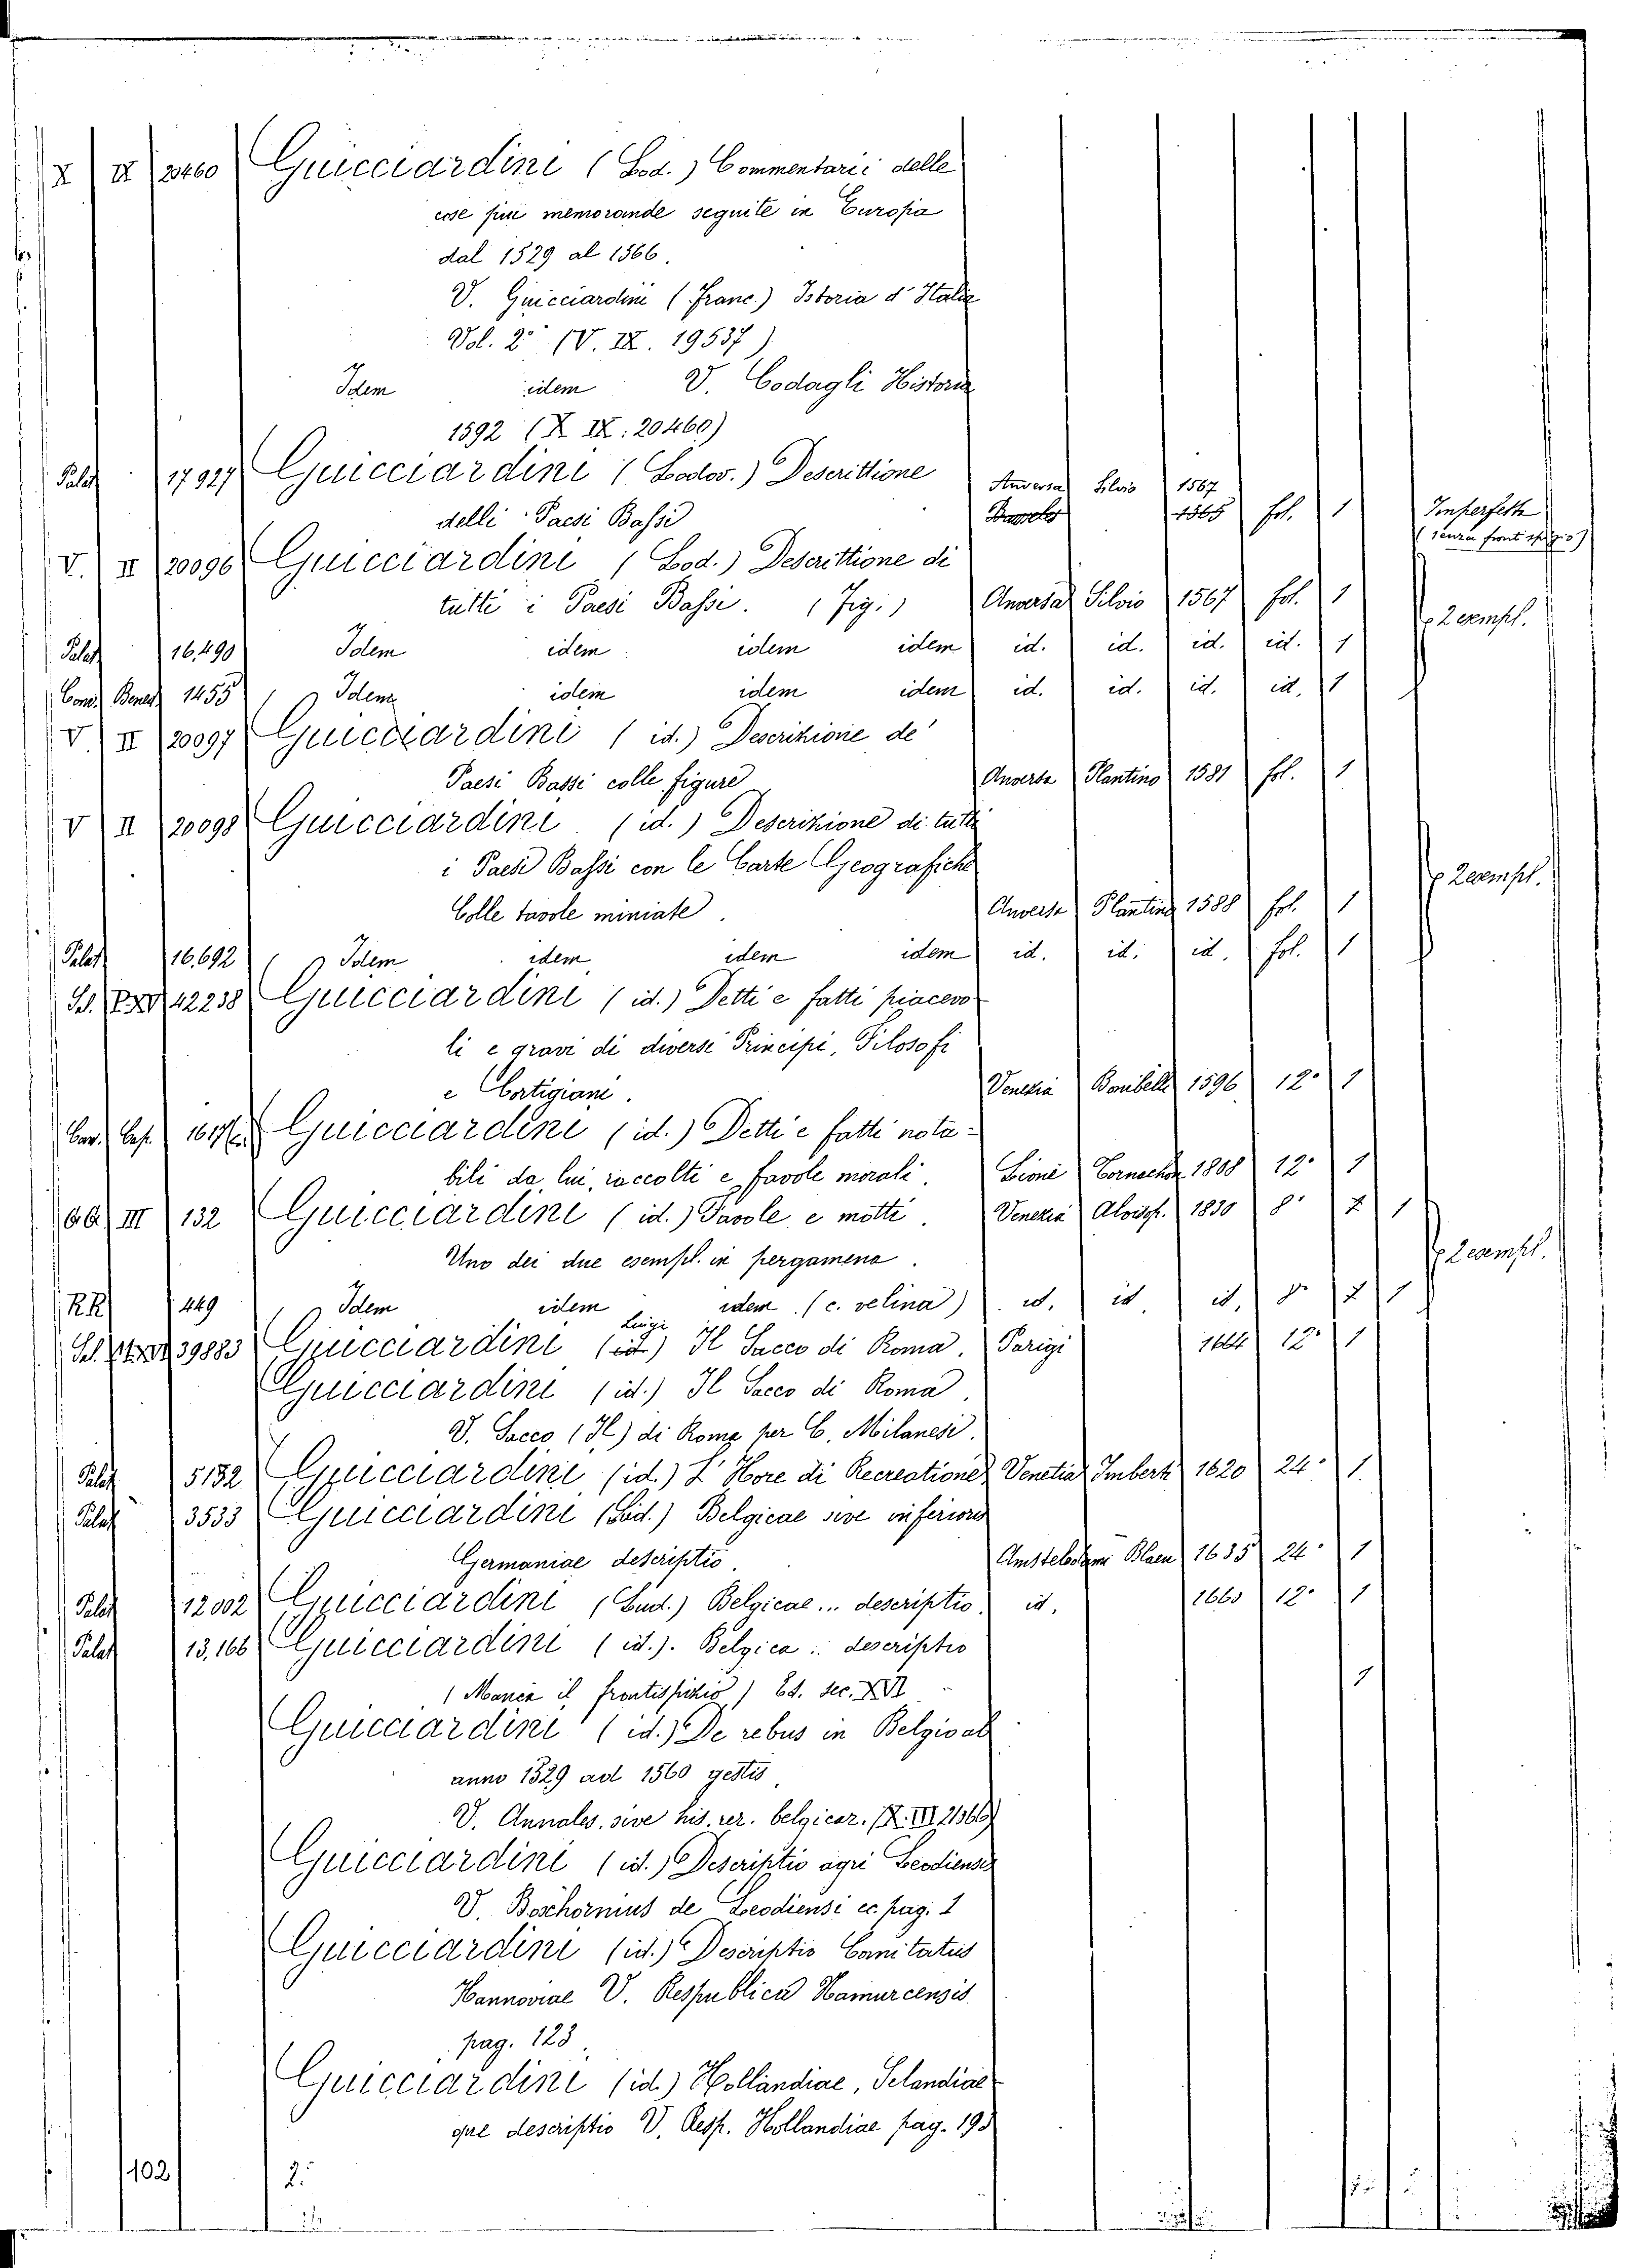 X IX 20460 Guicciardini (Lod.) Commentarii delle
cose più memorande seguite in Europa
dal 1529 al 1566.
V. Guicciardini (Franc.) Istoria d'Italia
Vol. 2º (V. IX. 19537)
Idem idem V. Codagli Historia
1592 (X IX. 20460)
Palat 17927 Guicciardini (Lodov.) Descrittione Anversa Silvio 1567
delli Paesi Bassi 1565 fol. 1 Imperfetto
(senza frontispizio)
V. II 20096 Guicciardini (Lod.) Descrittione di
tutti i Paesi Bassi. (Fig.) Anversa Silvio 1567 fol. 1
2 esempl.
Palat 16,490 Idem idem idem idem id. id. id. id. 1
Conv. Bened. 1455 Idem idem idem idem id. id. id. id. 1
V. II 20097 Guicciardini (id.) Descrizione de'
Paesi Bassi colle figure Anversa Plantino 1581 fol. 1
V II 20098 Guicciardini (id.) Descrizione di tutti
i Paesi Bassi con le Carte Geografiche
2 esempl.
Colle tavole miniate. Anversa Plantino 1588 fol. 1
Palat 16,692 Idem idem idem idem id. id. id. fol. 1
42238 Guicciardini (id.) Detti e fatti piacevo-
li e gravi di diversi Principi, Filosofi
e Cortigiani. Venezia Bonibelli 1596 12º 1
Guicciardini (id.) Detti e fatti nota-
bili da lui, raccolti e favole morali. Lione 1808 12º 1
III 132 Guicciardini (id.) Favole e motti. Venezia Alvisop. 1830 8º 2 1
Uno dei due esempl. in pergamena.
2 esempl.
RR 449 Idem idem idem (c. velina) id. id. id. 8º 2 1
Luigi
39883 Guicciardini (id.) Il Sacco di Roma. Parigi 1664 12º 1
Guicciardini (id.) Il Sacco di Roma.
V. Sacco (Il) di Roma per C. Milanesi.
Palat 5132 Guicciardini (id.) L'Hore di Recreatione Venetia Imberti 1620 24º 1
Palat 3533 Guicciardini (Lud.) Belgicae sive inferioris
Germaniae descriptio. Amstelodami Blaeu 1635 24º 1
Palat 12002 Guicciardini (Lud.) Belgicae... descriptio id. 1660 12º 1
Palat 13,166 Guicciardini (id.). Belgica.. descriptio
(Manca il frontispizio) Ed. sec. XVII 1
Guicciardini (id.) De rebus in Belgio ab
anno 1529 ad 1560 gestis.
V. Annales, sive his. rer. belgicar. (X. III 21366)
Guicciardini (id.) Descriptio agri Leodiensis
V. Boxhornius de Leodiensi ec. pag. 1
Guicciardini (id.) Descriptio Comitatus
Hannoviae V. Respublica Namurcensis
pag. 123.
Guicciardini (id.) Hollandiae, Selandiae-
que descriptio V. Resp. Hollandiae pag. 193
102 2.